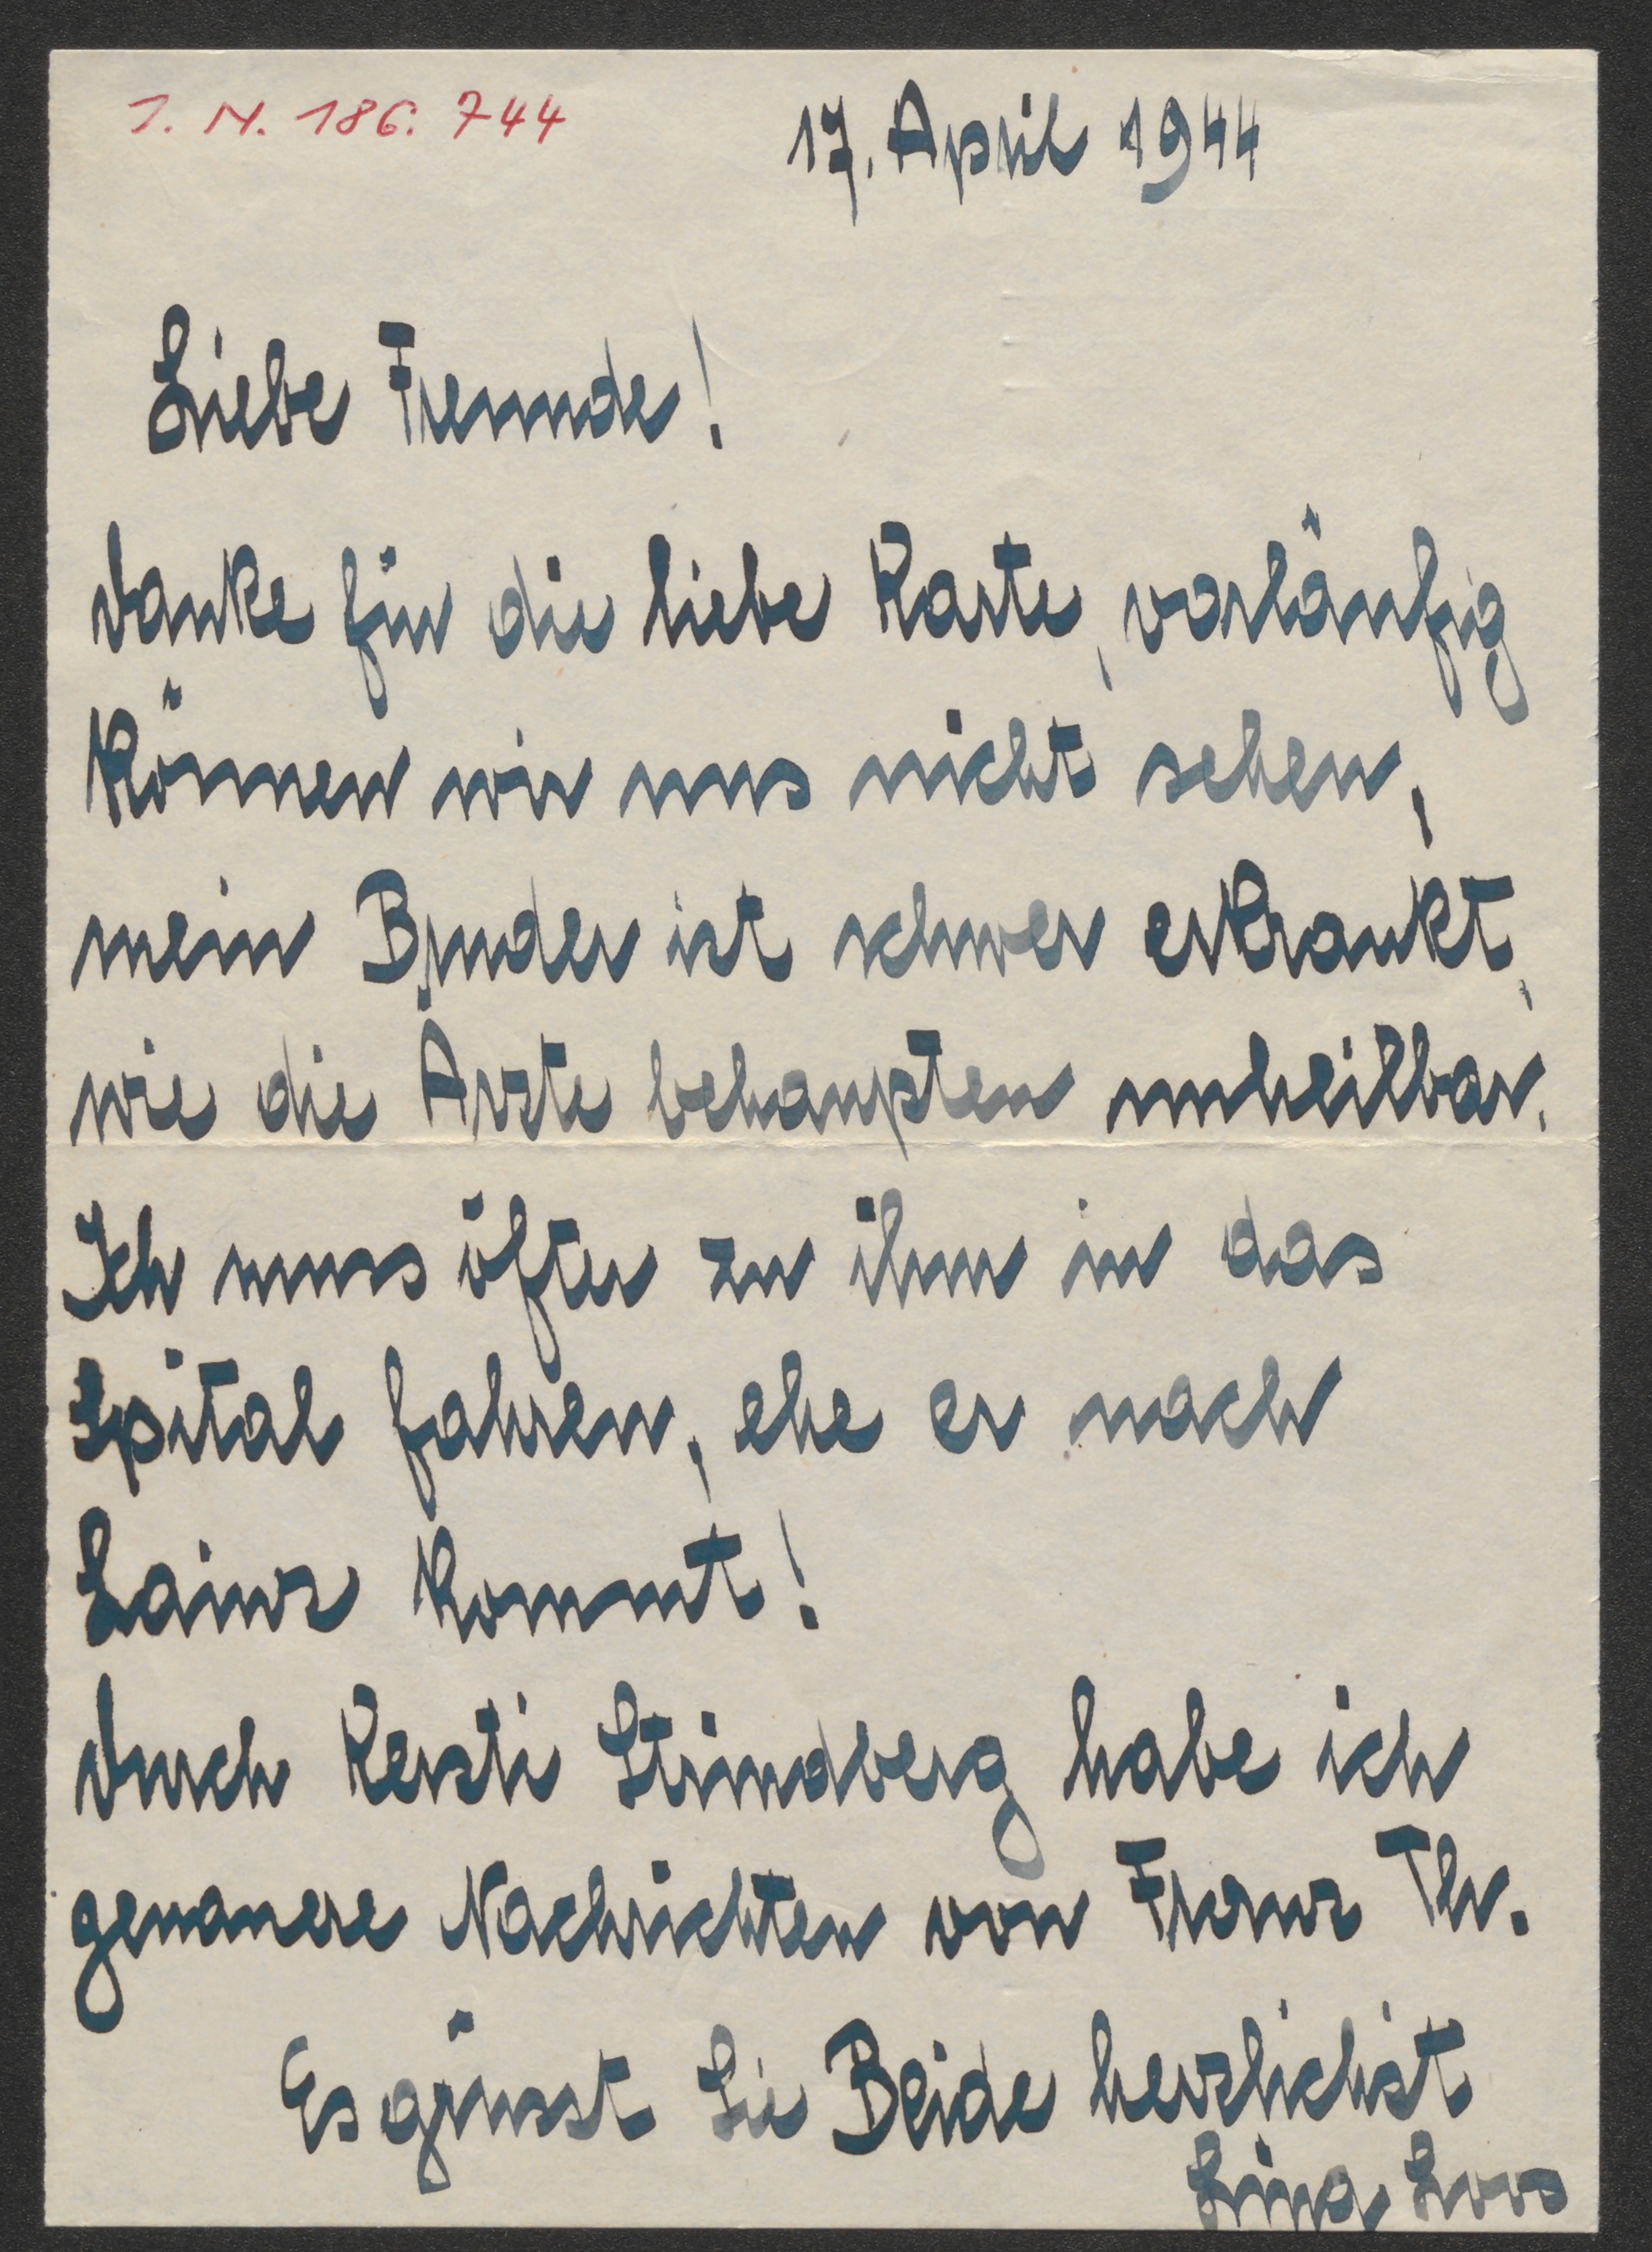 I. N. 186.744
17. April 1944
Liebe Freunde!
danke für die liebe Karte, vorläufig
können wir uns nicht sehen,
mein Bruder ist schwer erkrankt,
wie die Ärzte behaupten unheilbar.
Ich muss öfter zu ihm in das
Spital fahren, ehe er nach
Lainz kommt!
durch Kersti Strindberg habe ich
genauere Nachrichten von Franz Thr.
Es grüsst Sie Beide herzlichst
Lina Loos